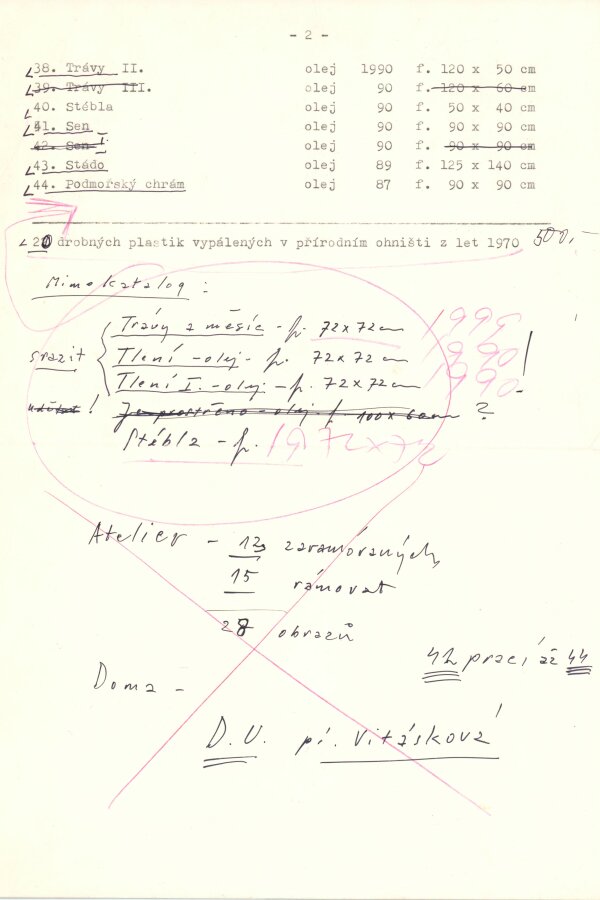 - 2 -
38. Trávy II. olej 1990 f. 120 x 50 cm
39. Trávy III. olej 90 f. 120 x 60 cm
40. Stébla olej 90 f. 50 x 40 cm
41. Sen olej 90 f. 90 x 90 cm
42. Sen I. olej 90 f. 90 x 90 cm
43. Stádo olej 89 f. 125 x 140 cm
44. Podmořský chrám olej 87 f. 90 x 90 cm
20 drobných plastik vypálených v přírodním ohništi z let 1970 500,-
Mimo katalog :
Trávy a měsíc - f. 72 x 72 cm 1990
srazit Tlení - olej - f. 72 x 72 cm 1990 !
Tlení I. - olej - f. 72 x 72 cm 1990
! Je prostřeno - olej f. 100 x 60 cm ?
Stébla - f. 72 x 72
Atelier - 13 zarámovaných
15 rámovat
28 obrazů
42 prací až 44
Doma -
D.U. pí. Vitásková